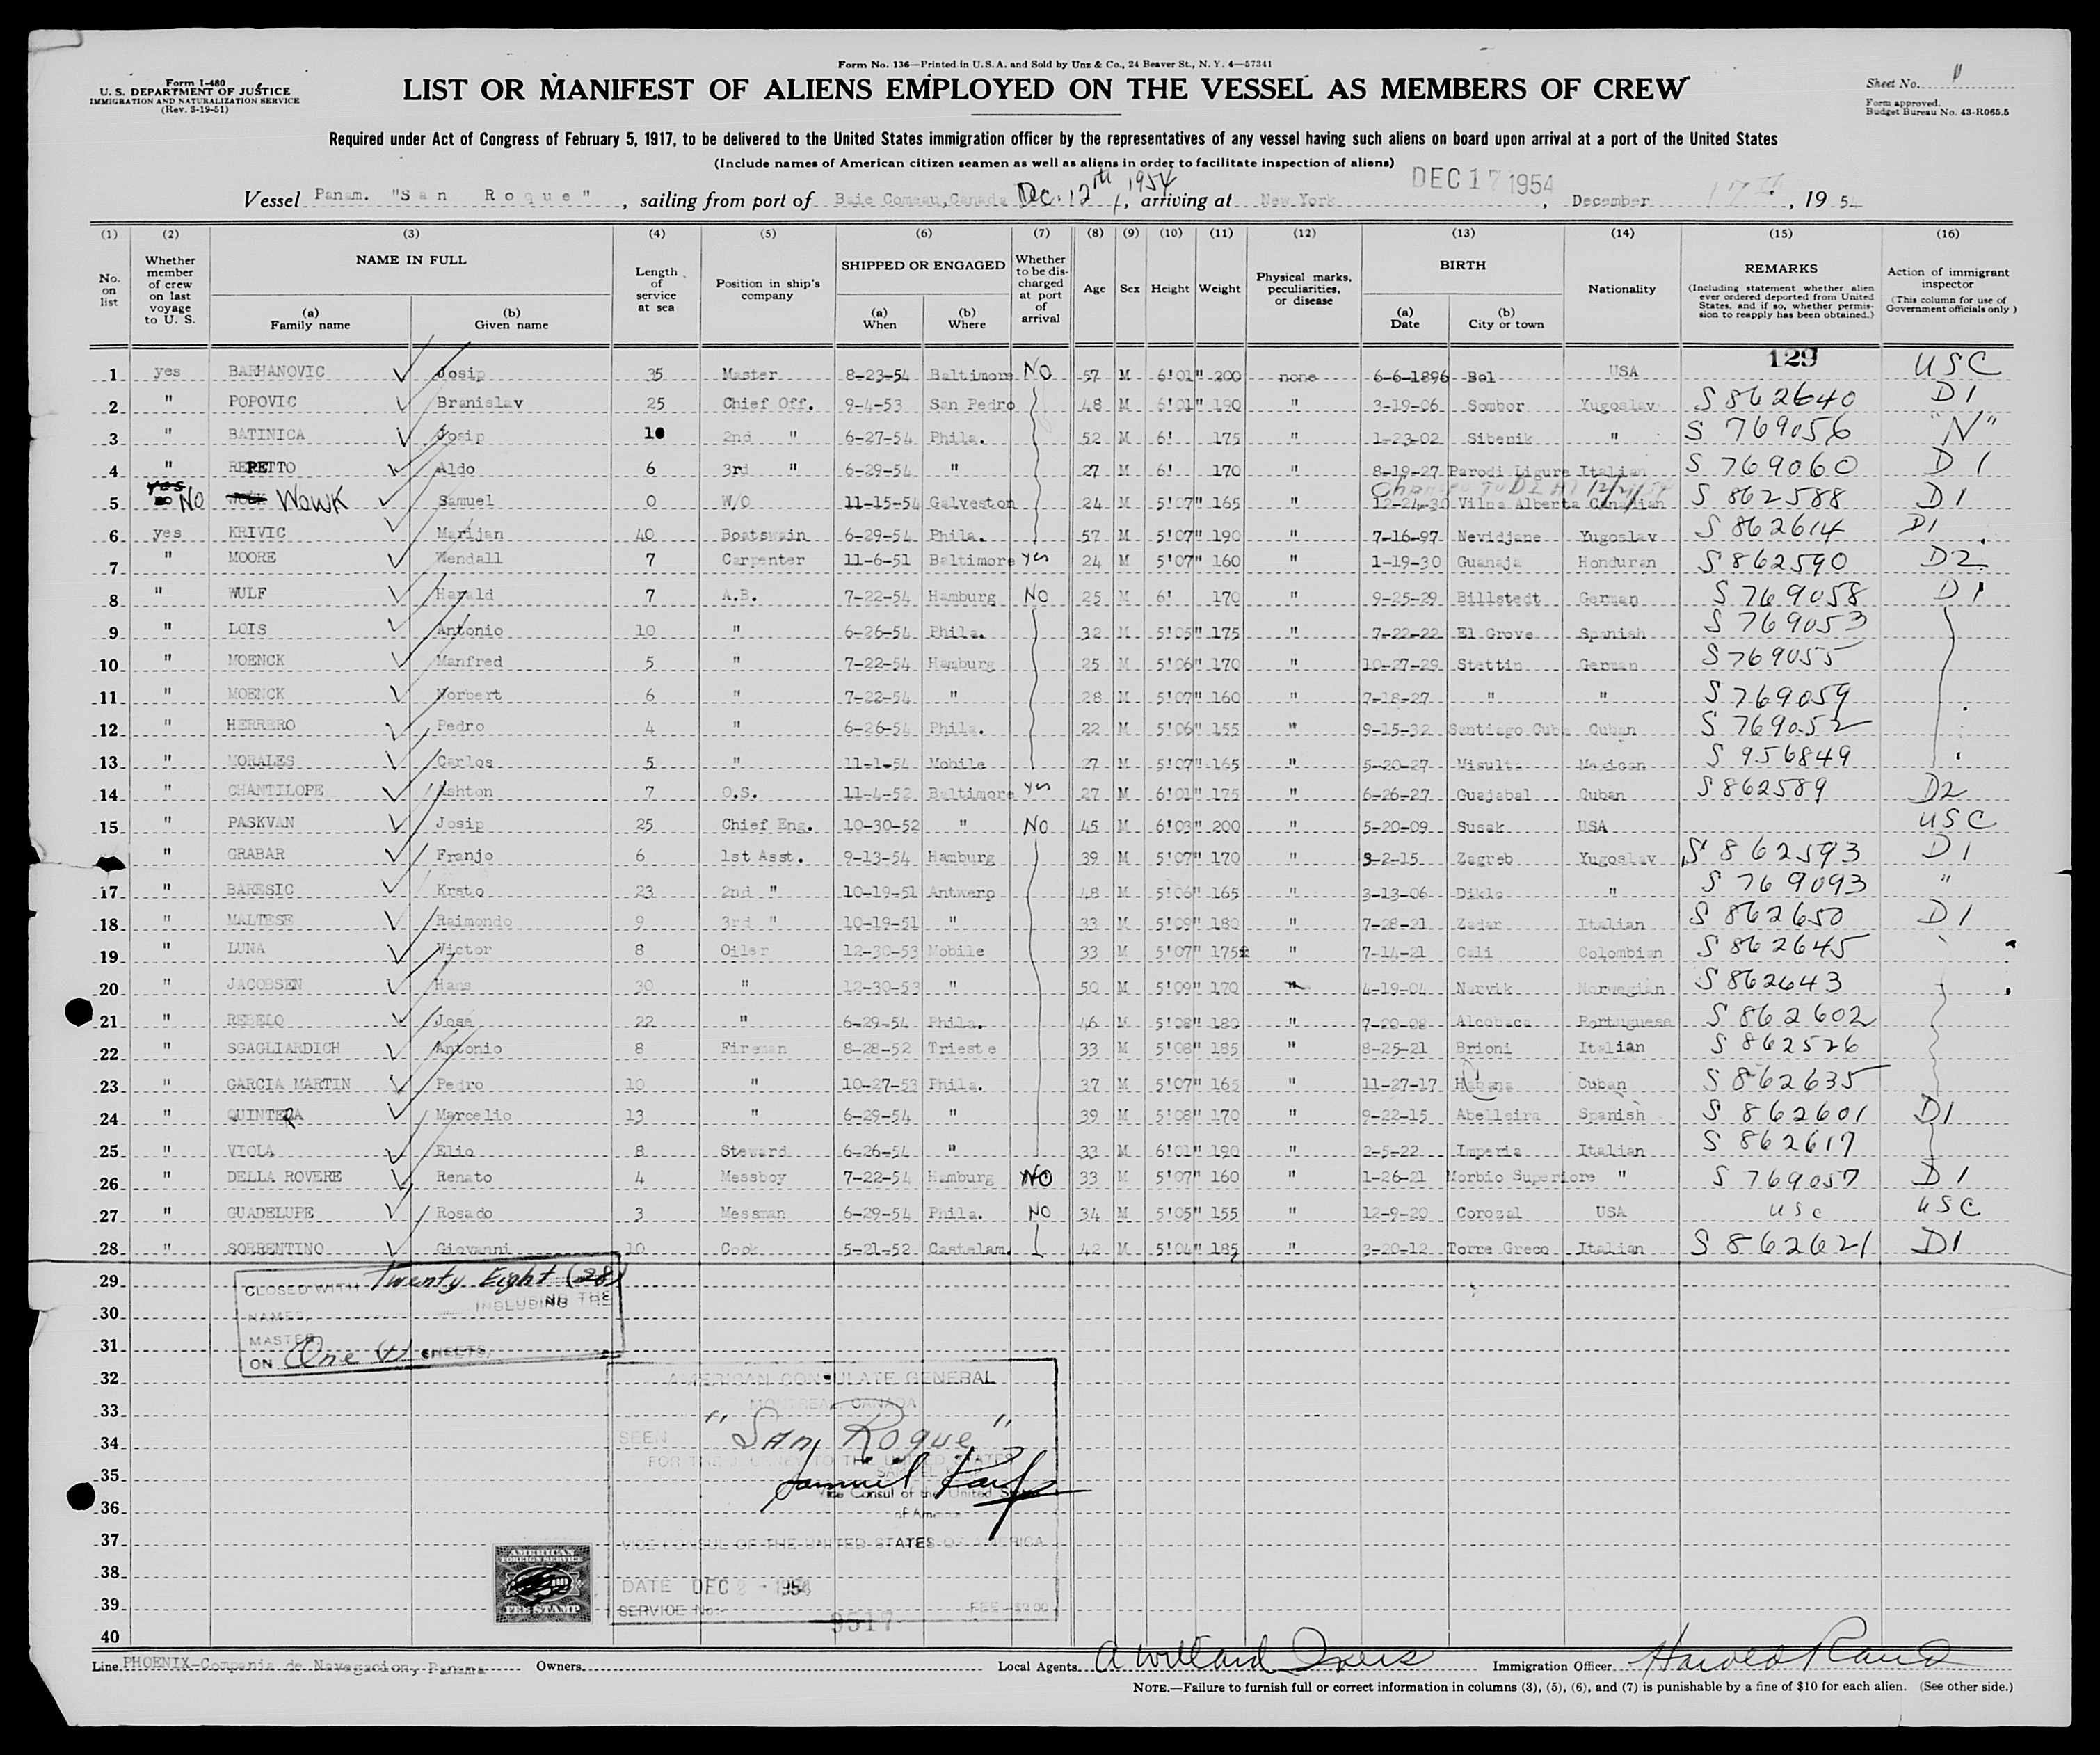 Form No. 136—Printed in U.S.A. and Sold by Unz & Co., 24 Beaver St., N. Y. 4—57341
Form I-480
U. S. DEPARTMENT OF JUSTICE
IMMIGRATION AND NATURALIZATION SERVICE
(Rev. 3-19-51)
LIST OR MANIFEST OF ALIENS EMPLOYED ON THE VESSEL AS MEMBERS OF CREW
Sheet No. 1
Form approved.
Budget Bureau No. 43-R065.5
Required under Act of Congress of February 5, 1917, to be delivered to the United States immigration officer by the representatives of any vessel having such aliens on board upon arrival at a port of the United States
(Include names of American citizen seamen as well as aliens in order to facilitate inspection of aliens)
DEC 17 1954
Vessel Panam. "San Roque", sailing from port of Baie Comeau, Canada Dec. 12th, 1954, arriving at New York, December 17th, 1954
(1) (2) (3) (4) (5) (6) (7) (8) (9) (10) (11) (12) (13) (14) (15) (16)
No. on list
Whether member of crew on last voyage to U. S.
NAME IN FULL
(a) Family name
(b) Given name
Length of service at sea
Position in ship's company
SHIPPED OR ENGAGED
(a) When
(b) Where
Whether to be discharged at port of arrival
Age
Sex
Height
Weight
Physical marks, peculiarities, or disease
BIRTH
(a) Date
(b) City or town
Nationality
REMARKS
(Including statement whether alien ever ordered deported from United States, and if so, whether permission to reapply has been obtained.)
Action of immigrant inspector
(This column for use of Government officials only)
129
1 yes BARHANOVIC Josip 35 Master 8-23-54 Baltimore NO 57 M 6'01" 200 none 6-6-1896 Bol USA USC
2 " POPOVIC Branislav 25 Chief Off. 9-4-53 San Pedro 48 M 6'01" 190 " 3-19-06 Sombor Yugoslav S 862640 D1
3 " BATINICA Josip 10 2nd " 6-27-54 Phila. 52 M 6' 175 " 1-23-02 Sibenik " S 769056 "N"
4 " REPETTO Aldo 6 3rd " 6-29-54 " 27 M 6' 170 " 8-19-27 Parodi Ligure Italian S 769060 D1
5 yes NO WOWK Samuel 0 W/O 11-15-54 Galveston 24 M 5'07" 165 " 12-24-30 Vilna Alberta Canadian S 862588 D1
6 yes KRIVIC Marijan 40 Boatswain 6-29-54 Phila. 57 M 5'07" 190 " 7-16-97 Nevidjane Yugoslav S 862614 D1
7 " MOORE Wendall 7 Carpenter 11-6-51 Baltimore yes 24 M 5'07" 160 " 1-19-30 Guanaja Honduran S 862590 D2
8 " WULF Harald 7 A.B. 7-22-54 Hamburg NO 25 M 6' 170 " 9-25-29 Billstedt German S 769058 D1
9 " LOIS Antonio 10 " 6-26-54 Phila. 32 M 5'05" 175 " 7-22-22 El Grove Spanish S 769053
10 " MOENCK Manfred 5 " 7-22-54 Hamburg 25 M 5'06" 170 " 10-27-29 Stettin German S 769055
11 " MOENCK Norbert 6 " 7-22-54 " 28 M 5'07" 160 " 7-18-27 " " S 769059
12 " HERRERO Pedro 4 " 6-26-54 Phila. 22 M 5'06" 155 " 9-15-32 Santiago Cuba Cuban S 769052
13 " MORALES Carlos 5 " 11-1-54 Mobile 27 M 5'07" 165 " 5-20-27 Misulta Mexican S 956849
14 " CHANTILOPE Ashton 7 O.S. 11-4-52 Baltimore yes 27 M 6'01" 175 " 6-26-27 Guajabal Cuban S 862589 D2
15 " PASKVAN Josip 25 Chief Eng. 10-30-52 " NO 45 M 6'03" 200 " 5-20-09 Susak USA USC
" GRABAR Franjo 6 1st Asst. 9-13-54 Hamburg 39 M 5'07" 170 " 3-2-15 Zagreb Yugoslav S 862593 D1
17 " BARESIC Krsto 23 2nd " 10-19-51 Antwerp 48 M 5'06" 165 " 3-13-06 Diklo " S 769093 "
18 " MALTESE Raimondo 9 3rd " 10-19-51 " 33 M 5'09" 180 " 7-28-21 Zadar Italian S 862650 D1
19 " LUNA Victor 8 Oiler 12-30-53 Mobile 33 M 5'07" 175 " 7-14-21 Cali Colombian S 862645
20 " JACOBSEN Hans 30 " 12-30-53 " 50 M 5'09" 170 " 4-19-04 Narvik Norwegian S 862643
21 " REBELO Jose 22 " 6-29-54 Phila. 46 M 5'08" 180 " 7-20-08 Alcobaca Portuguese S 862602
22 " SGAGLIARDICH Antonio 8 Fireman 8-28-52 Trieste 33 M 5'08" 185 " 8-25-21 Brioni Italian S 862526
23 " GARCIA MARTIN Pedro 10 " 10-27-53 Phila. 37 M 5'07" 165 " 11-27-17 Habana Cuban S 862635
24 " QUINTERA Marcelio 13 " 6-29-54 " 39 M 5'08" 170 " 9-22-15 Abelleira Spanish S 862601 D1
25 " VIOLA Elio 8 Steward 6-26-54 " 33 M 6'01" 190 " 2-5-22 Imperia Italian S 862617
26 " DELLA ROVERE Renato 4 Messboy 7-22-54 Hamburg NO 33 M 5'07" 160 " 1-26-21 Morbio Superiore " S 769057 D1
27 " GUADELUPE Rosado 3 Messman 6-29-54 Phila. NO 34 M 5'05" 155 " 12-9-20 Corozal USA USC USC
28 " SORRENTINO Giovanni 10 Cook 5-21-52 Castelam. 42 M 5'04" 185 " 3-20-12 Torre Greco Italian S 862621 D1
29
30
31
32
33
34
35
36
37
38
39
40
CLOSED WITH Twenty Eight (28)
NAMES, INCLUDING THE
MASTER
ON One (1) SHEETS.
AMERICAN CONSULATE GENERAL
MONTREAL, CANADA
SEEN "San Roque"
FOR THE JOURNEY TO THE UNITED STATES
Samuel Karp
Vice Consul of the United States
of America
VICE CONSUL OF THE UNITED STATES OF AMERICA
DATE DEC 1954
SERVICE No. 9517 FEE $2.00
AMERICAN
FOREIGN SERVICE
FEE STAMP
Line PHOENIX-Compania de Navegacion, Panama Owners Local Agents A Willard Ivers Immigration Officer Harold Rand
NOTE.—Failure to furnish full or correct information in columns (3), (5), (6), and (7) is punishable by a fine of $10 for each alien. (See other side.)